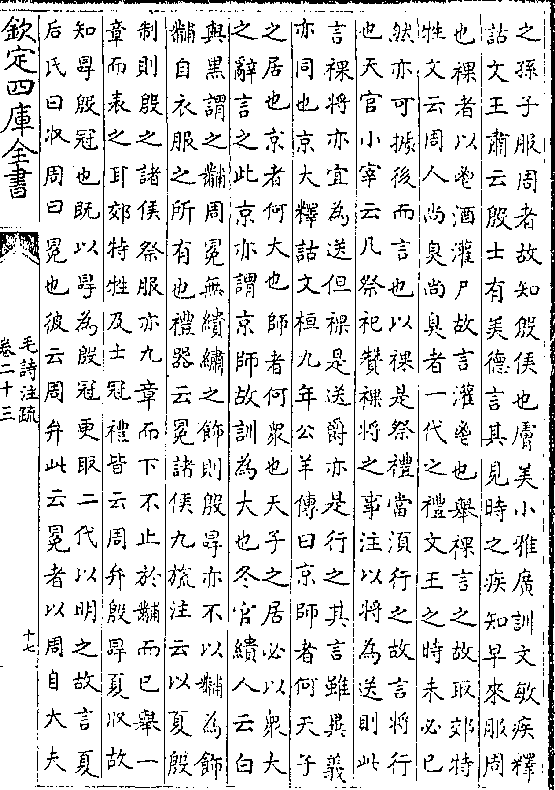 之孫子服周者故知殷侯也膚美小雅廣訓文敏疾釋
詁文王肅云殷士有美德言其見時之疾知早來服周
也祼者以鬯酒灌尸故言灌鬯也舉祼言之故取郊特
牲文云周人尚臭尚臭者一代之禮文王之時未必已
然亦可據後而言也以祼是祭禮當須行之故言將行
也天官小宰云凡祭祀贊祼將之事注以將為送則此
言祼將亦宜為送但祼是送爵亦是行之其言雖異義
亦同也京大釋詁文桓九年公羊傳曰京師者何天子
之居也京者何大也師者何衆也天子之居必以衆大
之辭言之此京亦謂京師故訓為大也冬官繢人云白
與黑謂之黼周冕無繢繡之飾則殷冔亦不以黼為飾
黼自衣服之所有也禮器云冕諸侯九旒注云以夏殷
制則殷之諸侯祭服亦九章而下不止於黼而已舉一
章而表之耳郊特牲及士冠禮皆云周弁殷冔夏收故
知冔殷冠也既以冔為殷冠更取二代以明之故言夏
后氏曰收周曰冕也彼云周弁此云冕者以周自大夫
欽定四庫全書
毛詩注疏
卷二十三
十七